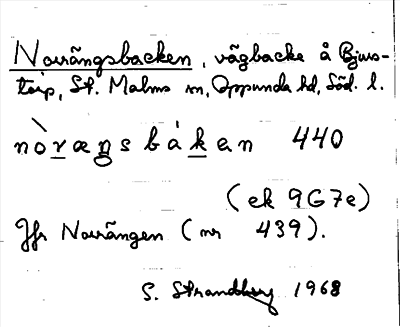 Norrängsbacken, vägbacke å Bjurs-
torp, St. Malms sn, Oppunda hd, Söd. l.
nòræŋsbákan 440
(ek 9G7e)
Jfr Norrängen (nr 439).
S. Strandberg 1968